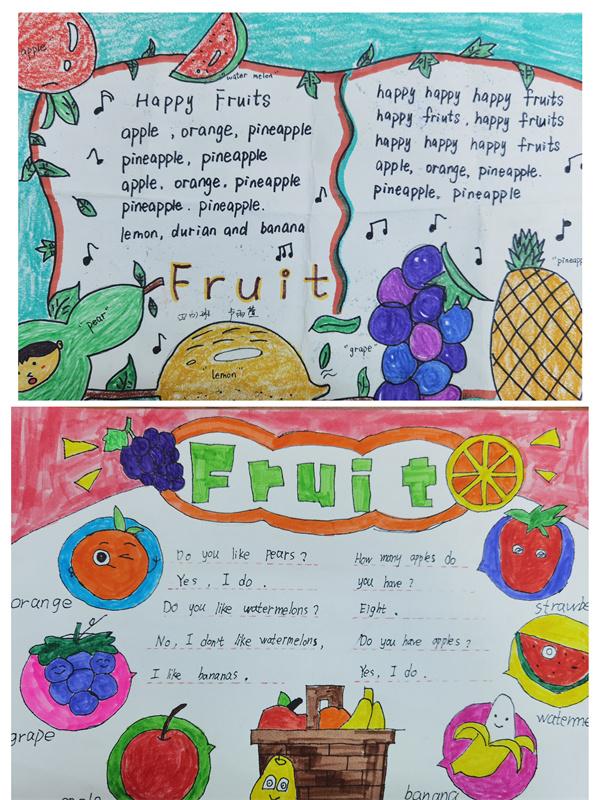 apple
"water melon"
Happy Fruits
apple , orange, pineapple
pineapple, pineapple
apple, orange, pineapple
pineapple. pineapple.
lemon, durian and banana
happy happy happy fruits
happy friuts, happy friuits
happy happy happy fruits
apple, orange, pineapple.
pineapple, pineapple
Fruit
"pear"
"lemon"
"grape"
"pineapp
Fruit
Do you like pears?
Yes, I do.
Do you like watermelons?
No, I don't like watermelons,
I like bananas.
How many apples do
you have?
Eight.
Do you have apples?
Yes, I do.
orange
grape
apple
strawbe
waterme
banana